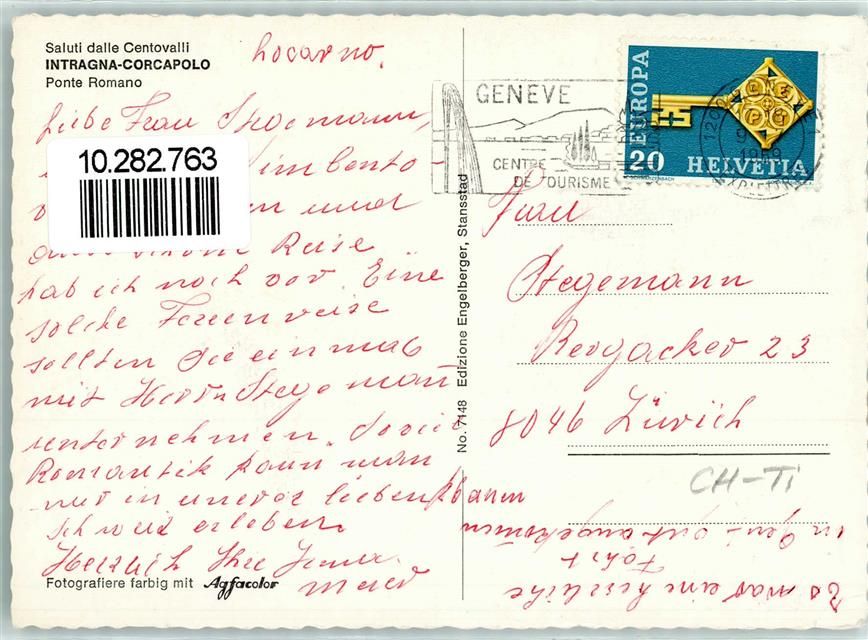 Saluti dalle Centovalli
INTRAGNA-CORCAPOLO
Ponte Romano
Locarno.
Liebe Frau Stegemann,
10.282.763
im Cento-
und
Reise
hab ich noch vor. Eine
solche Ferienreise
sollten Sie einmal
mit Herrn Stegemann
unternehmen. Soviel
Romantik kann man
nur in unerer lieben
Schweiz erleben.
Herzlich Ihre
Meier
Fotografiere farbig mit Agfacolor
No. 7148 Edizione Engelberger, Stansstad
GENEVE
CENTRE
DE TOURISME
EUROPA
20 HELVETIA
CEPT
Frau
Stegemann
8046 Zürich
CH-Ti
Es war eine herrliche
Fahrt
in Genf gut angekommen